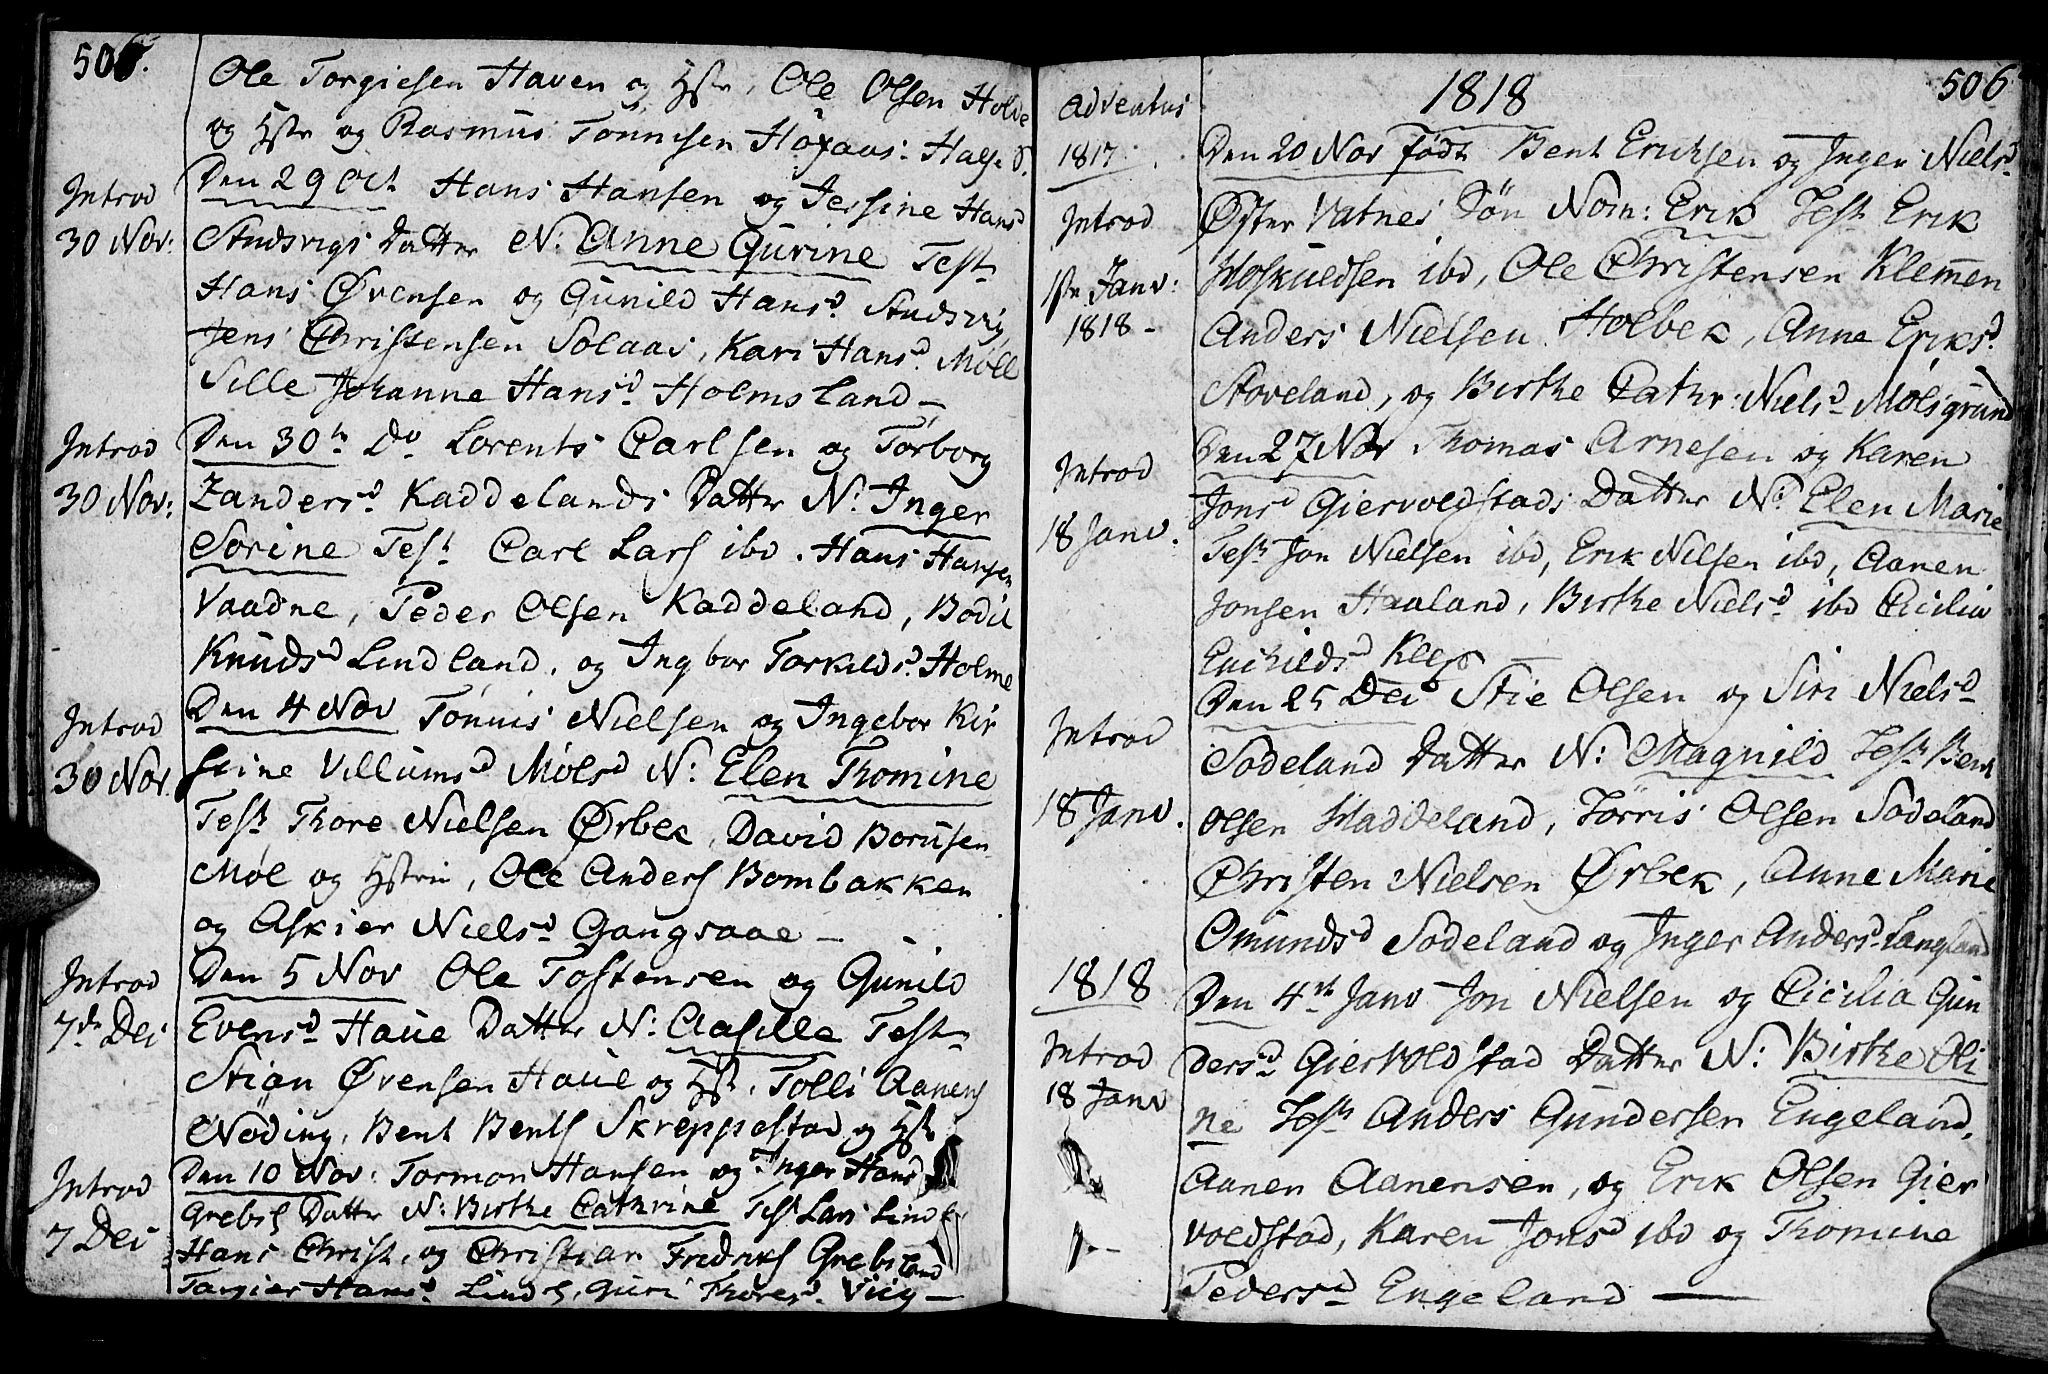 506.
Ole Torgiesen Haven og Hstr, Ole Olsen Holde
og Hstr og Rasmus Tønnesen Høxaas. Halse S.
Introd Den 29 Oct Hans Hansen og Jersine Hansd
30 Nov: Studsvigs Datter N: Anne Gurine Test
Hans Øvensen og Gunild Hansd. Studsvig
Jens Christensen Solaas, Kari Hansd. Möll
Sille Johanne Hansd Holmsland —
Introd Den 30te Do Lorents Carlsen og Torborg
30 Nov: Zandersd Kaddelands Datter N: Inger
Sorine Test Carl Lars ibd. Hans Hansen
Vaadne, Peder Olsen Kaddeland, Bodil
Knudsd Lindland, og Ingbor Torkildsd. Holme
Introd Den 4 Nov Tönnis Nielsen og Ingebor Kir
30 Nov. stine Villumsd Mølsd N: Elen Thomine
Test Thore Nielsen Ørbek, David Borusen
Møl og Hstru, Ole Anders Bombakken
og Askier Nielsd Gangsaae —
Introd Den 5 Nov Ole Tostensen og Gunild
7de Dei Evensd Haue Datter N: Aasille Test
Stian Øvensen Haue og Hstr, Tolli Aanens
Nöding, Bent Bents Skreppestad og Hstr
Introd Den 10 Nov: Tormon Hansen og Inger Hansd
7 Dei Grebsl Datter N: Birthe Cathrine Test Lars Lindl
Hans Christ. og Christian Fredriks Grebsland
Targier Hansd. Lindl, Guri Thoresd. Viig —
506
Adventus 1818
1817 Den 20 Nov födt Bent Erichsen og Inger Nielsd
Introd Øster Vatnes Søn Nom: Erik Test Erik
1ste Janv: Hoskuldsen ibd, Ole Christensen Klemmen
1818 – Anders Nielsen Holbek, Anne Eriksd.
Stoveland, og Birthe Cathr. Nielsd Mølsgrund
Introd Den 27 Nov Thomas Arnesen og Karen
18 Janv. Jonsd Giervoldstads Datter N: Elen Marie
Test Jon Nielsen ibd, Erik Nilsen ibd, Aanen
Jonsen Haaland, Birthe Nielsd ibd Cicilia
Enchildsd Klep —
Introd Den 25 Dei Stie Olsen og Siri Nielsd
18 Janv. Sodeland Datter N: Magnild Test Bent
Olsen Haddeland, Törris Olsen Sodeland
Christen Nielsen Ørbek, Anne Marie
Omundsd Sodeland og Inger Andersd Langland
1818 Den 4de Janv Jon Nielsen og Cicilia Gun
Introd dersd Giervoldstad Datter N: Birthe Oli
18 Janv ne Test Anders Gundersen Engeland,
Aanen Aanensen, og Erik Olsen Gier
voldstad, Karen Jonsd ibd og Thomine
Pedersd Engeland —